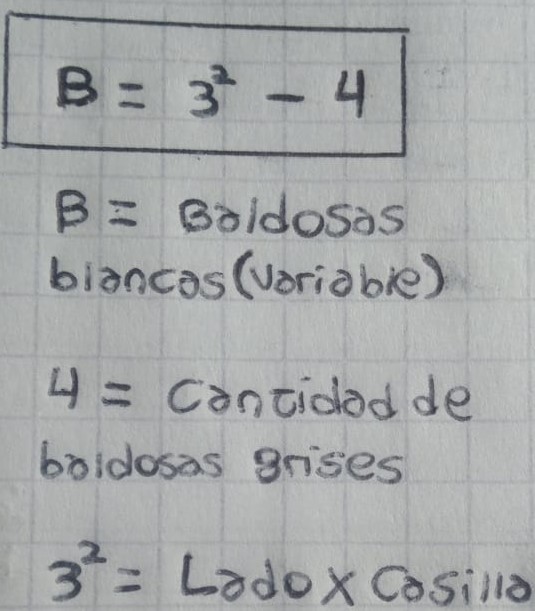 B = 3² - 4
B = Baldosas
blancas (variable)
4 = Cantidad de
baldosas grises
3² = Lado x Casilla